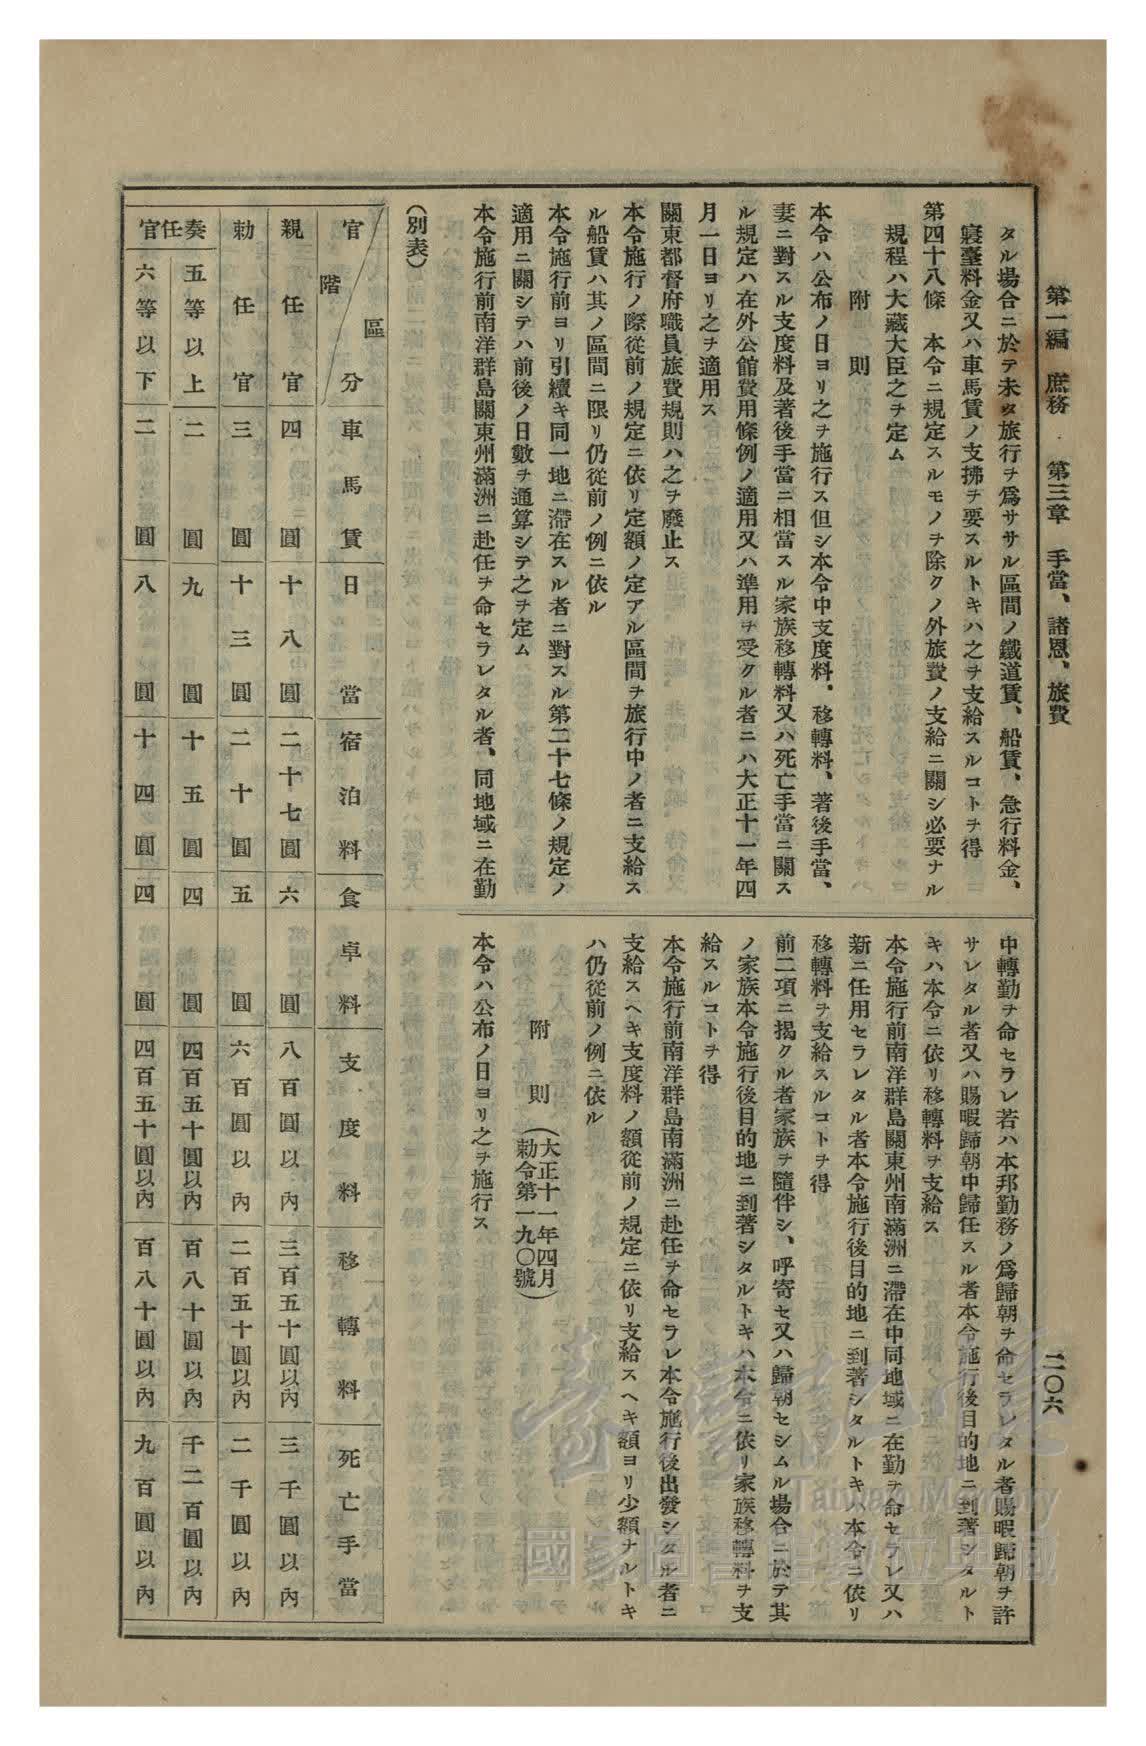 第一編 庶務 第三章 手當、諸恩、旅費
二〇六
タル場合ニ於テ未タ旅行ヲ爲ササル區間ノ鐵道賃、船賃、急行料金、
寢臺料金又ハ車馬賃ノ支拂ヲ要スルトキハ之ヲ支給スルコトヲ得
第四十八條 本令ニ規定スルモノヲ除クノ外旅費ノ支給ニ關シ必要ナル
規程ハ大藏大臣之ヲ定ム
附 則
本令ハ公布ノ日ヨリ之ヲ施行ス但シ本令中支度料、移轉料、著後手當、
妻ニ對スル支度料及著後手當ニ相當スル家族移轉料又ハ死亡手當ニ關ス
ル規定ハ在外公館費用條例ノ適用又ハ準用ヲ受クル者ニハ大正十一年四
月一日ヨリ之ヲ適用ス
關東都督府職員旅費規則ハ之ヲ廢止ス
本令施行ノ際從前ノ規定ニ依リ定額ノ定アル區間ヲ旅行中ノ者ニ支給ス
ル船賃ハ其ノ區間ニ限リ仍從前ノ例ニ依ル
本令施行前ヨリ引續キ同一地ニ滯在スル者ニ對スル第二十七條ノ規定ノ
適用ニ關シテハ前後ノ日數ヲ通算シテ之ヲ定ム
本令施行前南洋群島關東州滿洲ニ赴任ヲ命セラレタル者、同地域ニ在勤
中轉勤ヲ命セラレ若ハ本邦勤務ノ爲歸朝ヲ命セラレタル者賜暇歸朝ヲ許
サレタル者又ハ賜暇歸朝中歸任スル者本令施行後目的地ニ到著シタルト
キハ本令ニ依リ移轉料ヲ支給ス
本令施行前南洋群島關東州南滿洲ニ滯在中同地域ニ在勤ヲ命セラレ又ハ
新ニ任用セラレタル者本令施行後目的地ニ到著シタルトキハ本令ニ依リ
移轉料ヲ支給スルコトヲ得
前二項ニ揭クル者家族ヲ隨伴シ、呼寄セ又ハ歸朝セシムル場合ニ於テ其
ノ家族本令施行後目的地ニ到著シタルトキハ本令ニ依リ家族移轉料ヲ支
給スルコトヲ得
本令施行前南洋群島南滿洲ニ赴任ヲ命セラレ本令施行後出發シタル者ニ
支給スヘキ支度料ノ額從前ノ規定ニ依リ支給スヘキ額ヨリ少額ナルトキ
ハ仍從前ノ例ニ依ル
附 則 (大正十一年四月
勅令第一九〇號)
本令ハ公布ノ日ヨリ之ヲ施行ス
(別表)
官階 區分 車馬賃 日當 宿泊料 食卓料 支度料 移轉料 死亡手當
親任官 四圓 十八圓 二十七圓 六圓 八百圓以內 三百五十圓以內 三千圓以內
勅任官 三圓 十三圓 二十圓 五圓 六百圓以內 二百五十圓以內 二千圓以內
奏任官
五等以上 二圓 九圓 十五圓 四圓 四百五十圓以內 百八十圓以內 千二百圓以內
六等以下 二圓 八圓 十四圓 四圓 四百五十圓以內 百八十圓以內 九百圓以內
臺灣記憶
Taiwan Memory
國家圖書館數位典藏